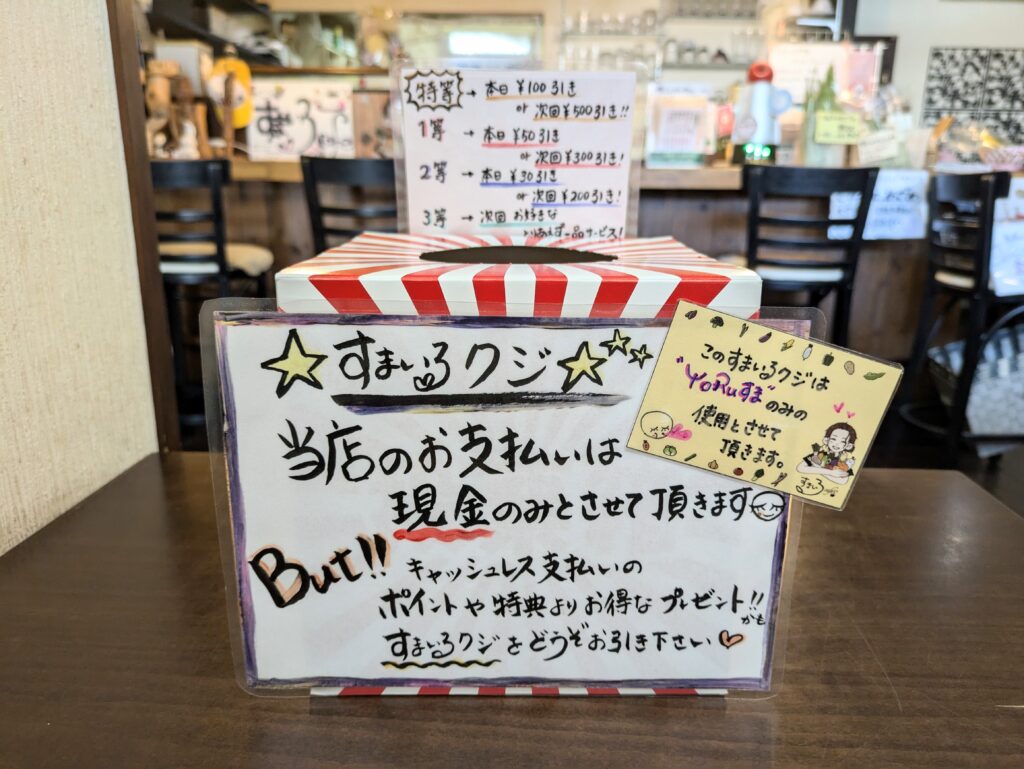 特等 → 本日 ¥100引き
or 次回¥500引き!!
1等 → 本日 ¥50引き
or 次回¥300引き!
2等 → 本日 ¥30引き
or 次回¥200引き!
3等 → 次回 お好きな
とりあえず一品サービス!
すまいるクジ
当店のお支払いは
現金のみとさせて頂きます
But!! キャッシュレス支払いの
ポイントや特典よりお得なプレゼント!!
かも
すまいるクジをどうぞお引き下さい
このすまいるクジは
"YoRuすま"のみの
使用とさせて
頂きます。
すまいる